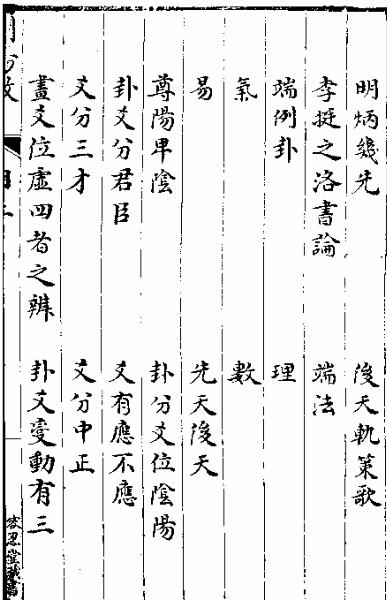 明炳幾先
後天軌策歌
李挺之洛書論
端法
端例卦
理
氣
數
易
先天後天
尊陽卑陰
卦分爻位陰陽
卦爻分君臣
爻有應不應
爻分三才
爻分中正
畫爻位虛四者之辨
卦爻變動有三